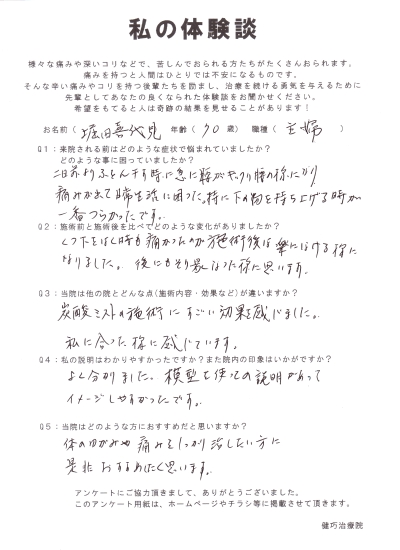 私の体験談
様々な痛みや深いコリなどで、苦しんでおられる方たちがたくさんおられます。
痛みを持つと人間はひとりでは不安になるものです。
そんな辛い痛みやコリを持つ後輩たちを励まし、治療を続ける勇気を与えるために
先輩としてあなたの良くなられた体験談をお聞かせください。
希望をもてると人は奇跡の結果を見せることがあります！
お名前（堀田喜代見 年齢（70歳） 職種（主婦）
Q1：来院される前はどのような症状で悩まれていましたか？
どのような事に困っていましたか？
二日前よりふとん干す時に急に腰がギックリ腰の様になり
痛みが出て日常生活に困った。特に下の物を持ち上げる時が
一番つらかったです。
Q2：施術前と施術後を比べてどのような変化がありましたか？
くつ下をはく時も痛かったのが施術後は楽にはける様に
なりました。後にもそり易くなった様に思います。
Q3：当院は他の院とどんな点(施術内容・効果など)が違いますか？
炭酸ミストの施術にすごい効果を感じました。
私に合った様に感じています。
Q4：私の説明はわかりやすかったですか？また院内の印象はいかがですか？
よく分かりました。模型を使っての説明があって
イメージしやすかったです。
Q5：当院はどのような方におすすめだと思いますか？
体のゆがみや痛みをしっかり治したい方に
是非おすすめしたく思います。
アンケートにご協力頂きまして、ありがとうございました。
このアンケート用紙は、ホームページやチラシ等に掲載させて頂きます。
健巧治療院